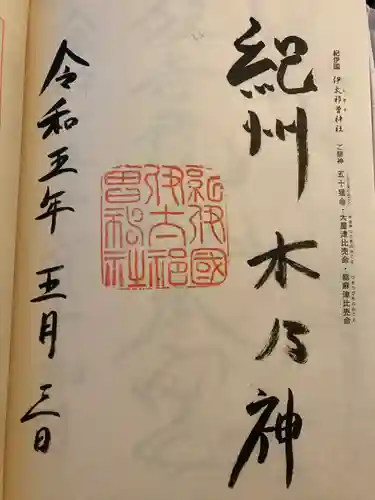 紀伊國 伊太祁曽神社 ご祭神 五十猛命・大屋津比売命・都麻津比売命
紀州 木乃神
紀伊國
伊太祁
曽神社
令和五年 五月 三日